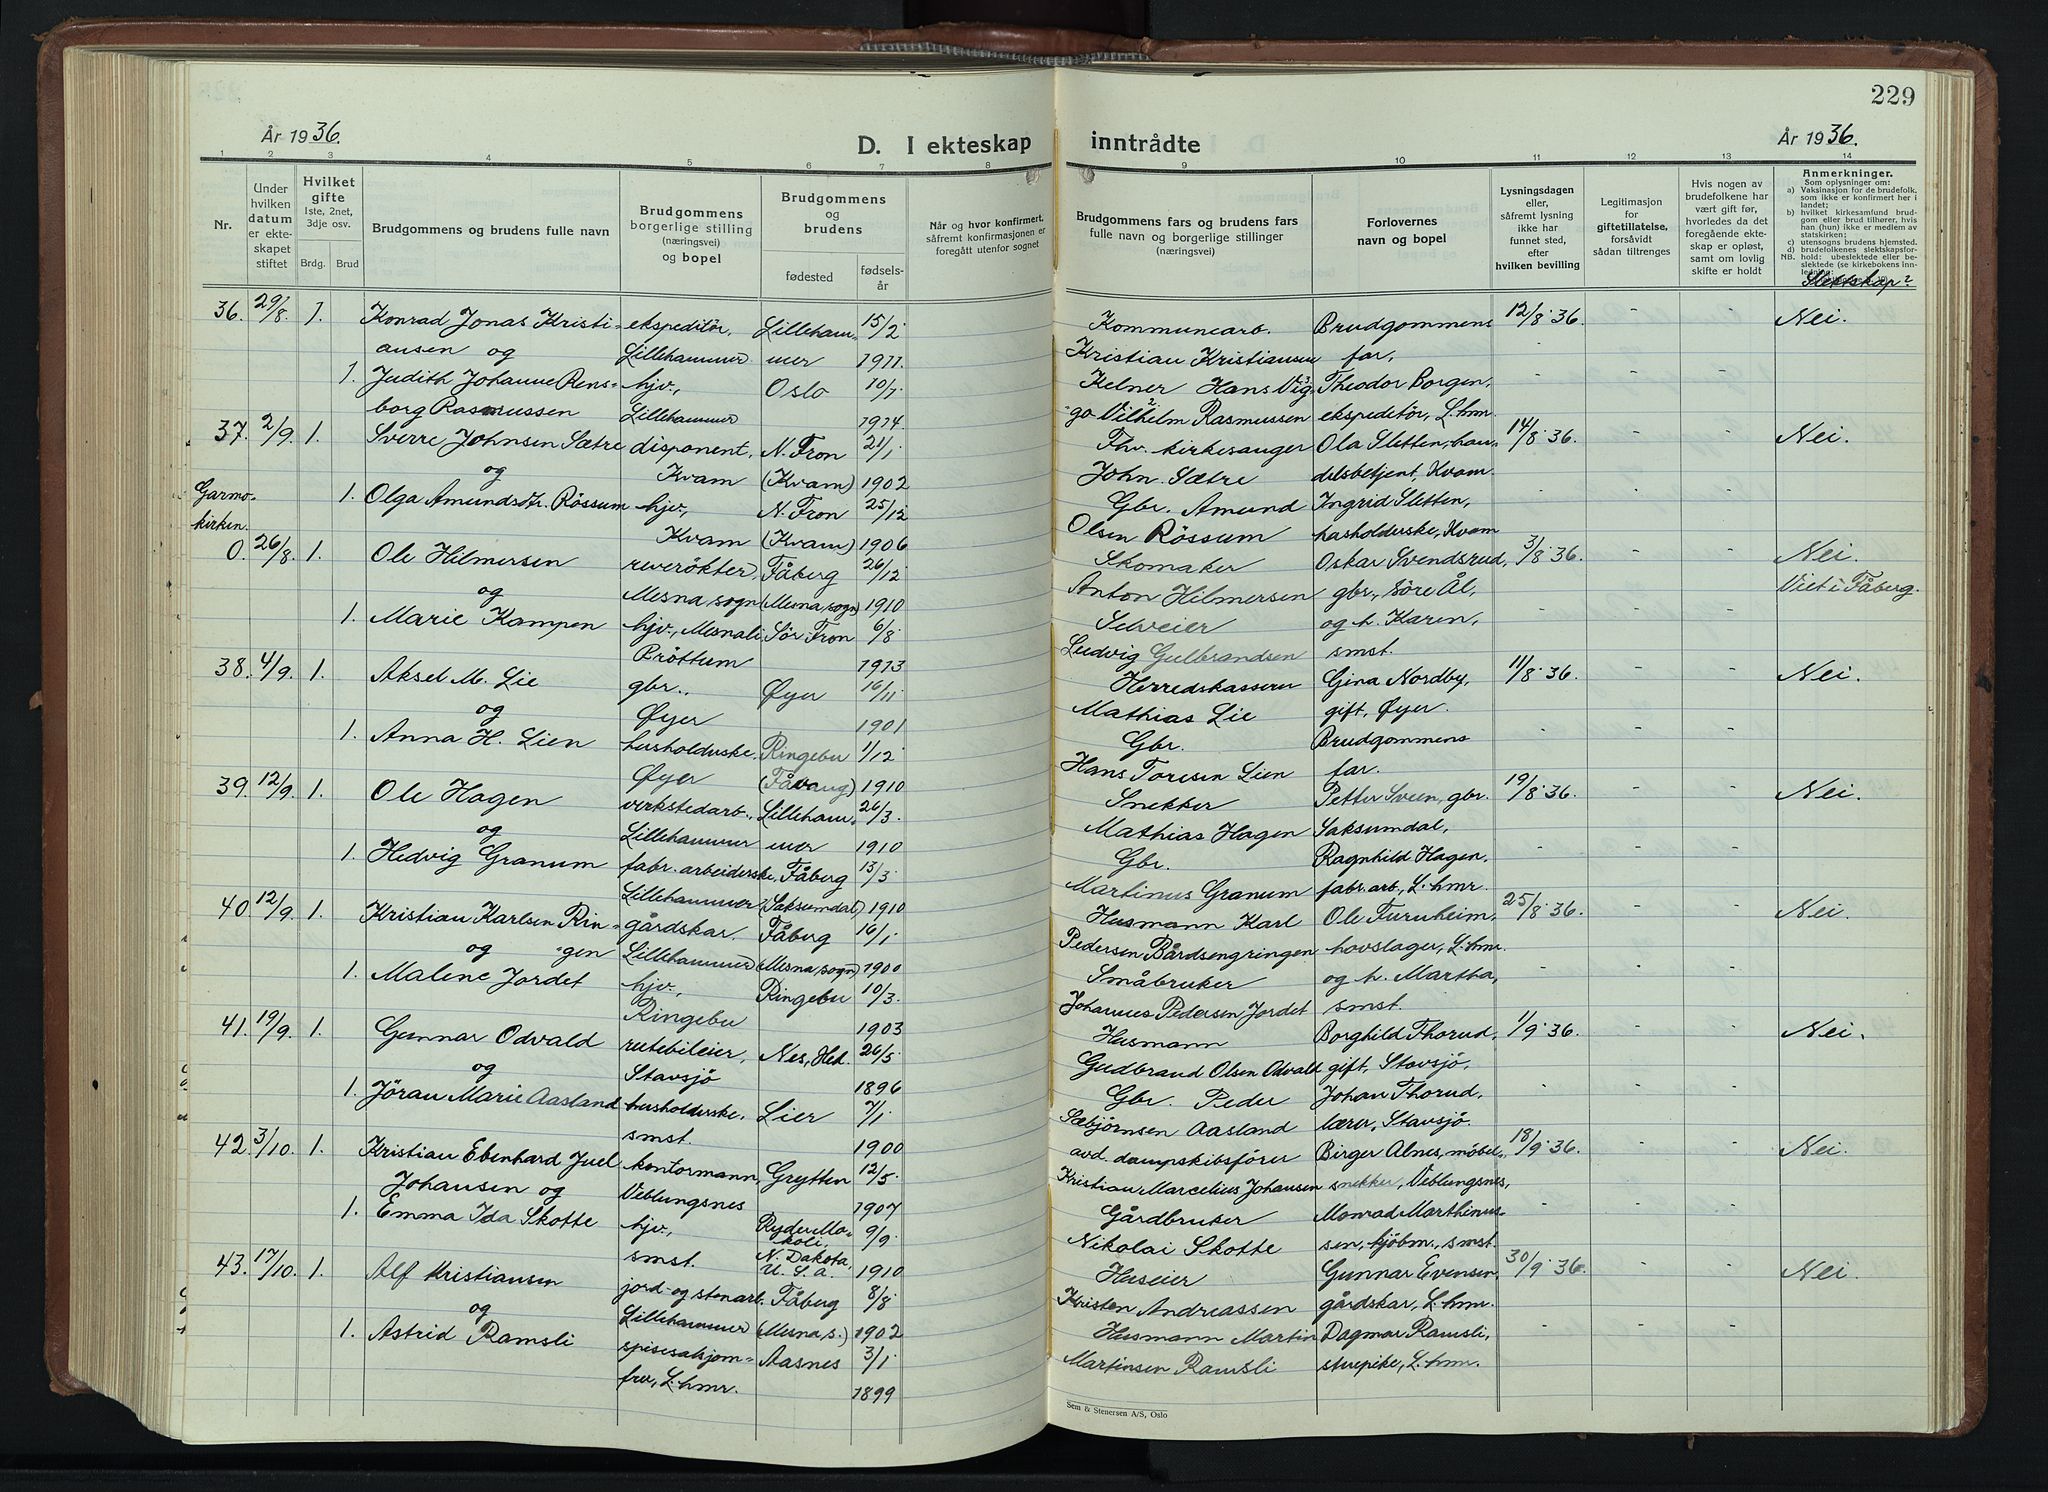 229
År 1936.
D. I ekteskap inntrådte
År 1936.
1 2 3 4 5 6 7 8 9 10 11 12 13 14
Nr.
Under hvilken datum er ekteskapet stiftet
Hvilket gifte
1ste, 2net, 3dje osv.
Brdg. Brud
Brudgommens og brudens fulle navn
Brudgommens borgerlige stilling (næringsvei) og bopel
Brudgommens og brudens
fødested
fødselsår
Når og hvor konfirmert, såfremt konfirmasjonen er foregått utenfor sognet
Brudgommens fars og brudens fars fulle navn og borgerlige stillinger (næringsvei)
Forlovernes navn og bopel
Lysningsdagen eller, såfremt lysning ikke har funnet sted, efter hvilken bevilling
Legitimasjon for giftetillatelse, forsåvidt sådan tiltrenges
Hvis nogen av brudefolkene har vært gift før, hvorledes da det foregående ekteskap er opløst, samt om lovlig skifte er holdt
Anmerkninger.
Som oplysninger om:
a) Vaksinasjon for de brudefolk, som ikke er konfirmert her i landet;
b) hvilket kirkesamfund brudgom eller brud tilhører, hvis han (hun) ikke er medlem av statskirken;
c) utensogns brudens hjemsted.
d) brudefolkenes slektskapsforhold: ubeslektede eller beslektede (se kirkebokens innledning
NB.
Slektskap?
36. 29/8. 1. Konrad Jonas Kristi- ekspeditör, Lilleham- 15/2 Kommunearb. Brudgommens 12/8 36. - - Nei.
ansen og Lillehammer mer 1911. Kristian Kristiansen far,
1. Judith Johanne Rens- hjv., Oslo 10/7 Kelner Hans Vig- Theodor Borgen,
borg Rasmussen Lillehammer 1914 go Vilhelm Rasmussen ekspeditör, L.hmr.
37. 2/9. 1. Sverre Johnsen Sætre disponent, N. Fron 21/1 Fhv. kirkesanger Ola Sletten, han- 14/8 36. - - Nei.
og Kvam (Kvam) 1902 John Sætre delsbetjent, Kvam
Garmo-
kirken.
1. Olga Amundsdtr. Rössum hjv., N. Fron 25/12 Gbr. Amund Ingrid Sletten,
Kvam (Kvam) 1906 Olsen Rössum husholderske, Kvam
0. 26/8. 1. Ole Hilmersen reverökter, Fåberg 26/12 Skomaker Oskar Svendsrud, 3/8 36. - - Nei.
og Mesna sogn (Mesna sogn) 1910 Anton Hilmersen gbr., Söre Ål, Viet i Fåberg.
1. Marie Kampen hjv., Mesnali Sör Fron 6/8 Selveier og h. Karen,
Bröttum 1913 Ludvig Gulbrandsen smst.
38. 4/9. 1. Aksel M. Lie gbr., Øyer 16/11 Herredskasserer Gina Nordby, 11/8 36. - - Nei.
og Øyer 1901 Mathias Lie gift, Øyer.
1. Anna H. Lien husholderske, Ringebu 1/12 Gbr. Brudgommens
Øyer (Fåvang) 1910 Hans Toresen Lien far.
39. 12/9. 1. Ole Hagen verkstedarb., Lilleham- 26/3. Snekker Petter Sveen, gbr. 19/8 36. - - Nei.
og Lillehammer mer 1910 Mathias Hagen Saksumdal,
1. Hedvig Granum fabr. arbeiderske, Fåberg 13/3 Gbr. Ragnhild Hagen,
Lillehammer (Saksumdal) 1910 Martinus Granum fabr. arb., L.hmr.
40 12/9. 1. Kristian Karlsen Rin- gårdskar. Fåberg 16/1 Husmann Karl Ole Furuheim, 25/8 36. - - Nei.
og -gen Lillehammer (Mesna sogn) 1900 Pedersen Bårdsengringen hovslager, L.hmr.
1. Malene Jordet hjv., Ringebu 10/3. Småbruker og h. Martha,
Ringebu 1903 Johannes Pedersen Jordet smst.
41. 19/9. 1. Gunnar Odvald rutebileier, Nes, Hed. 26/5 Husmann Borghild Thorud, 1/9 36. - - Nei.
og Stavsjö 1896 Gudbrand Olsen Odvald gift, Stavsjö,
1. Jöran Marie Aasland husholderske, Lier 7/1 Gbr. Peder Johan Thorud,
smst. 1900 Sæbjörnsen Aasland lærer, Stavsjö.
42. 3/10. 1. Kristian Ebenhard Juel kontormann, Grytten 12/5 avd. dampskibsförer Birger Alnes, möbel- 18/9 36. - - Nei.
Johansen og Veblungsnes 1907 Kristian Marcelius Johansen snekker, Veblungsnes,
1. Emma Ida Skotte hjv., Ryder Mo- 9/9 Gårdbruker Monrad Marthinus-
koli,
smst. N. Dakota, 1910 Nikolai Skotte sen, kjöbm., smst.
U. S. A.
43. 17/10. 1. Alf Kristiansen jord- og stenarb. Fåberg 8/8 Huseier Gunnar Evensen, 30/9 36. - - Nei.
og Lillehammer (Mesna s.) 1902 Kristen Andreassen gårdskar, L.hmr.
1. Astrid Ramsli spisesalsjom- Aasnes 3/1 Husmann Martin Dagmar Ramsli,
fru, L.hmr. 1899 Martinsen Ramsli stuepike, L.hmr.
Sem & Stenersen A/S, Oslo